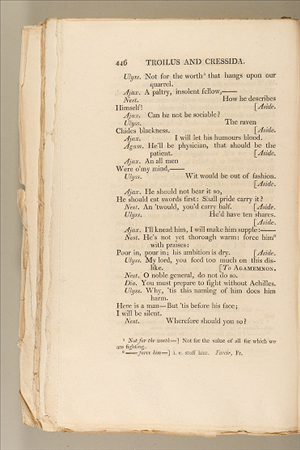 446 TROILUS AND CRESSIDA.
Ulyss. Not for the worth⁵ that hangs upon our
quarrel.
Ajax. A paltry, insolent fellow,——
Nest. How he describes
Himself! [Aside.
Ajax. Can he not be sociable?
Ulyss. The raven
Chides blackness. [Aside.
Ajax. I will let his humours blood.
Agam. He'll be physician, that should be the
patient. [Aside.
Ajax. An all men
Were o'my mind,——
Ulyss. Wit would be out of fashion.
[Aside.
Ajax. He should not bear it so,
He should eat swords first: Shall pride carry it?
Nest. An 'twould, you'd carry half. [Aside.
Ulyss. He'd have ten shares.
[Aside.
Ajax. I'll knead him, I will make him supple:——
Nest. He's not yet thorough warm: force him⁶
with praises:
Pour in, pour in; his ambition is dry. [Aside.
Ulyss. My lord, you feed too much on this dis-
like. [To AGAMEMNON.
Nest. O noble general, do not do so.
Dio. You must prepare to fight without Achilles.
Ulyss. Why, 'tis this naming of him does him
harm.
Here is a man—But 'tis before his face;
I will be silent.
Nest. Wherefore should you so?
⁵ Not for the worth—] Not for the value of all for which we
are fighting.
⁶ ——force him—] i. e. stuff him. Farcir, Fr.